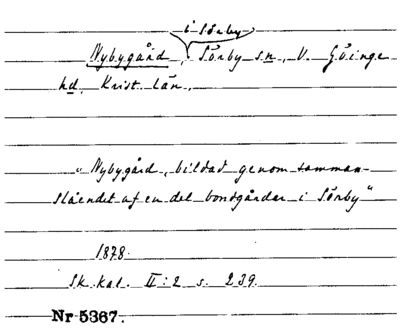 i Sörby
Nybygård, Sörby sn, V. Göinge
hd, Krist. län.
"Nybygård, bildad genom samman-
slåendet af en del bondgårdar i Sörby"
1878.
Sk. kat. II:2 s. 239.
Nr 5367.